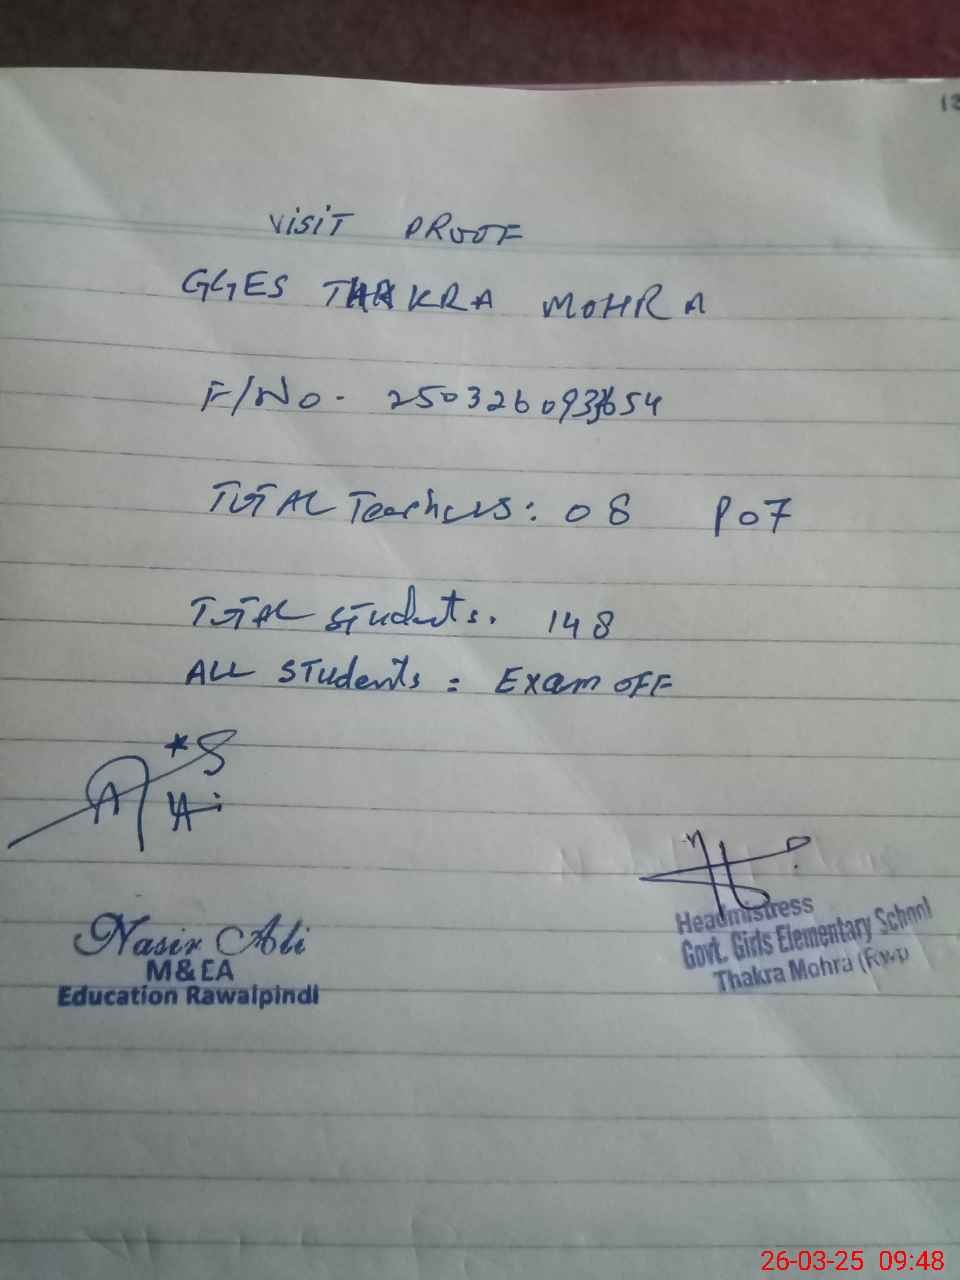 VISIT PROOF
GGES THAKRA MOHRA
F/No. 250326093654
TOTAL Teachers: 08 P07
TOTAL students. 148
ALL Students = Exam OFF
Nasir Ali
M&EA
Education Rawalpindi
Headmistress
Govt. Girls Elementary School
Thakra Mohra (Rwp)
26-03-25 09:48